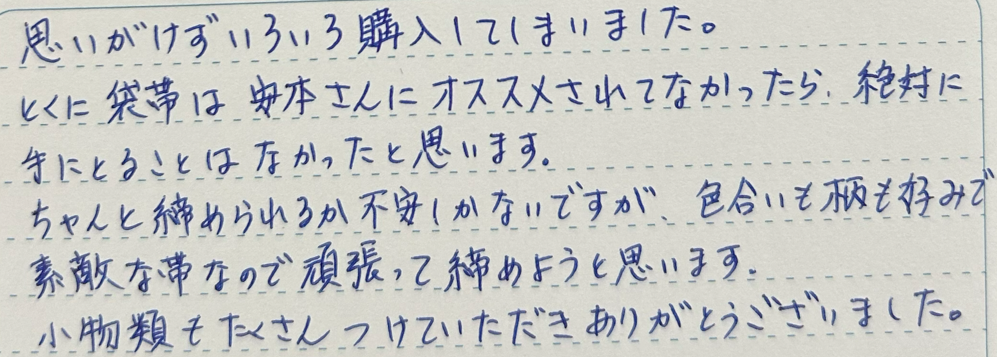 思いがけずいろいろ購入してしまいました。
とくに袋帯は安本さんにオススメされてなかったら、絶対に
手にとることはなかったと思います。
ちゃんと締められるか不安しかないですが、色合いも柄も好みで
素敵な帯なので頑張って締めようと思います。
小物類もたくさんつけていただきありがとうございました。